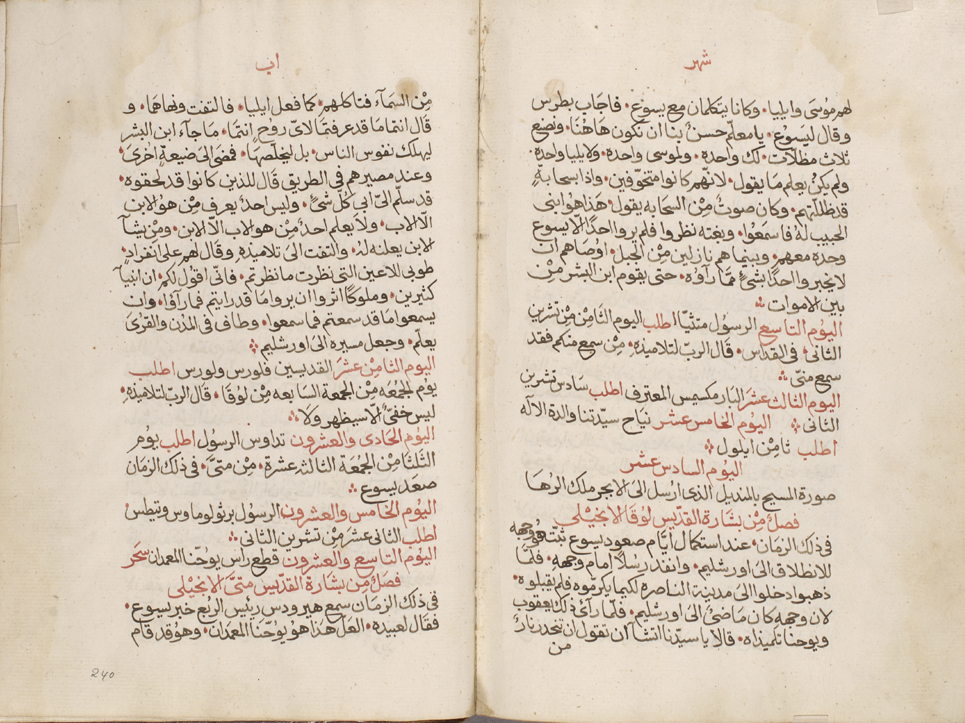 شهر
لهم موسى وايليا٠ وكانا يتكلمان مع يسوع٠ فاجاب بطرس
وقال ليسوع٠ يا معلم حسنٌ بنا ان نكون هاهنا٠ ونصنع
ثلاث مظلّات٠ لك واحدة٠ ولموسى واحدة٠ ولايليا واحدة٠
ولم يكن يعلم ما يقول٠ لانهم كانوا متخوّفين٠ واذا سحابةٌ
قد ظللتهم٠ وكان صوتٌ مِن السحابه يقول٠ هذا هو ابنى
الحبيب لهُ فاسمعوا٠ وبغته نظروا فلم يروا احدًا الّا يسوع
وحدهُ معهم٠ وبينما هم نازلين مِن الجبل٠ اوصاهم ان
لا يخبروا احدًا بشئٍ ممّا رآوُه٠ حتى يقوم ابن البشر مِن
بين الاموات
اليوم التاسع الرسول متثيا اطلب اليوم الثامن مِن تشرين
الثانى٠ فى القداس٠ قال الربّ لتلاميذه٠ مِن سمع منكم فقد
سمع منّى
اليوم الثالث عشر البار مكسيمس المعترف اطلب سادس تشرين
الثانى اليوم الخامس عشر نياح سيّدتنا والدة الآله
اطلب ثامن ايلول
اليوم السادس عشر
صورة المسيح بالمنديل الذى ارسل الى الابجر ملك الرها
فصلٌ مِن بشارة القدّيس لوقا الانجيلى
فى ذلك الزمان٠ عند استكمال ايّام صعود يسوع ثبت هو وجهه
للانطلاق الى اورشليم٠ وانفذ رسلًا امام وجهه٠ فلمّا
ذهبوا دخلوا الى مدينة الناصرة لكيما يكرموه فلم يقبلوه٠
لان وجهه كان ماضىٌ الى اورشليم٠ فلمّا رآى ذلك يعقوب
ويوحنا تلميذاه٠ قالا يا سيّدنا اتشا ان نقول ان تنحدر نارٌ
من
اب
مِن السمآء فتاكلهم٠ كما فعل ايليا٠ فالتفت ونهاهما٠ و
قال انتما ما قد عرفتما لاىّ روحٍ انتما٠ ما جآء ابن البشر
ليهلك نفوس الناس٠ بل ليخلّصها٠ فمضى الى ضيعةٍ اخرى٠
وعند مصيرهم فى الطريق قال للذين كانوا قد لحقوه٠
قد سلّم الىّ ابى كل شئٍ٠ وليس احدٌ يعرف مِن هو الابن
الّا الاب٠ ولا يعلم احدٌ مِن هو الاب الّا الابن٠ ومِن يشآ
الابن يعلنه لهُ٠ والتفت الى تلاميذه وقال لهم على انفرادٍ٠
طوبى للاعين التى نظرت ما نظرتم٠ فانّى اقول لكم٠ ان انبيآ
كثيرين٠ وملوكًا اثروا ان يروا ما قد رايتم فما رآوا٠ وان
يسمعوا ما قد سمعتم فما سمعوا٠ وطاف فى المدن والقرى
يعلّم٠ وجعل مسيره الى اورشليم
اليوم الثامن عشر القديسين فلورس ولورس اطلب
يوم الجمعه مِن الجمعة السابعه مِن لوقا٠ قال الربّ لتلاميذه٠
ليس خفىٌّ الّا سيظهر ولا
اليوم الحادى والعشرون تداوس الرسول اطلب يوم
الثلثا مِن الجمعة الثالثة عشرة٠ مِن متىّ٠ فى ذلك الزمان
صعد يسوع
اليوم الخامس والعشرون الرسول برثولوماوس وتيطس
اطلب الثانى عشر مِن تشرين الثانى
اليوم التاسع والعشرون قطع راس يوحنّا المعمدان سَحَر
فصلٌ مِن بشارة القدّيس متىّ الانجيلى
فى ذلك الزمان سمع هيرودس رييس الربع خبر يسوع٠
فقال لعبيده٠ العل هذا هو يوحنّا المعمدان٠ وهو قد قام
240